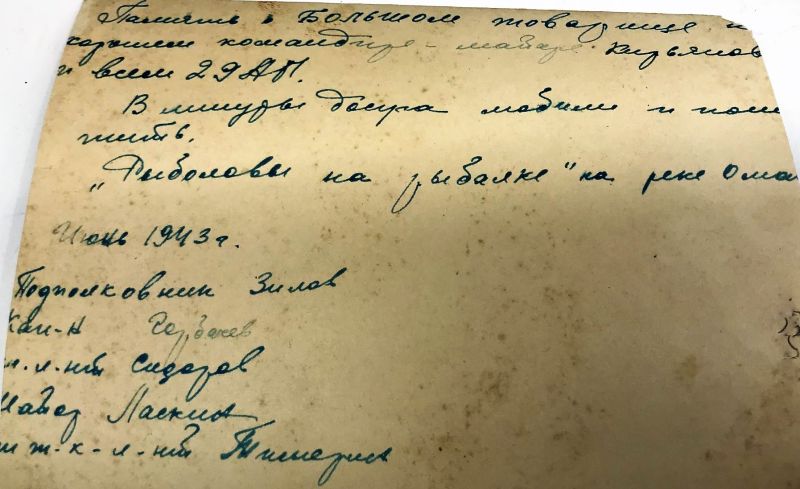 Память о Большом товарище и
хорошем командире - майоре Кирьянов
и всем 29 АП.
В минуты досуга любили и пош
тить.
„Рыболовы на рыбалке" на реке Ома
Июнь 1943 г.
Подполковник Зилов
Кап-н Горбачев
л-нт Сидоров
Майор Ласкин
ж-к-л-нт